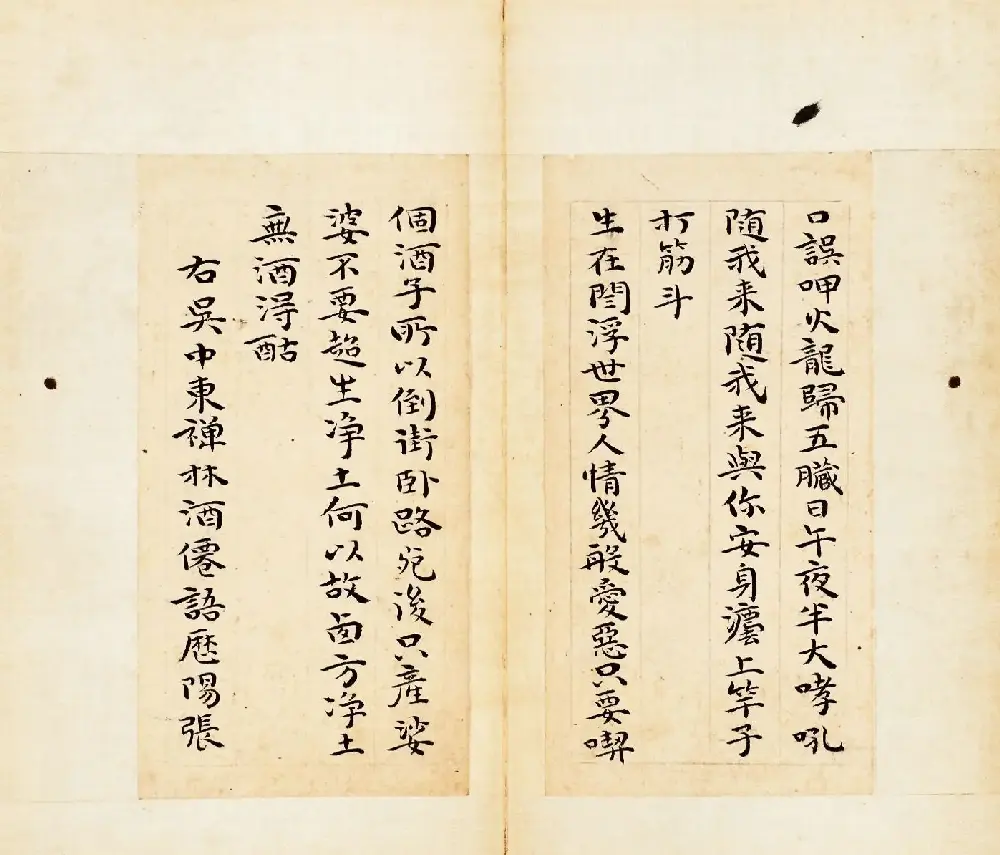 口誤呷火龍歸五臟日午夜半大哮吼
随我来随我来與你安身灋上竿子
打筋斗
生在閻浮世界人情幾般愛惡只要喫
個酒子所以倒街卧路死後只產娑
婆不要超生浄土何以故西方浄土
無酒淂酤
右吳中東禅林酒僊語歷陽張